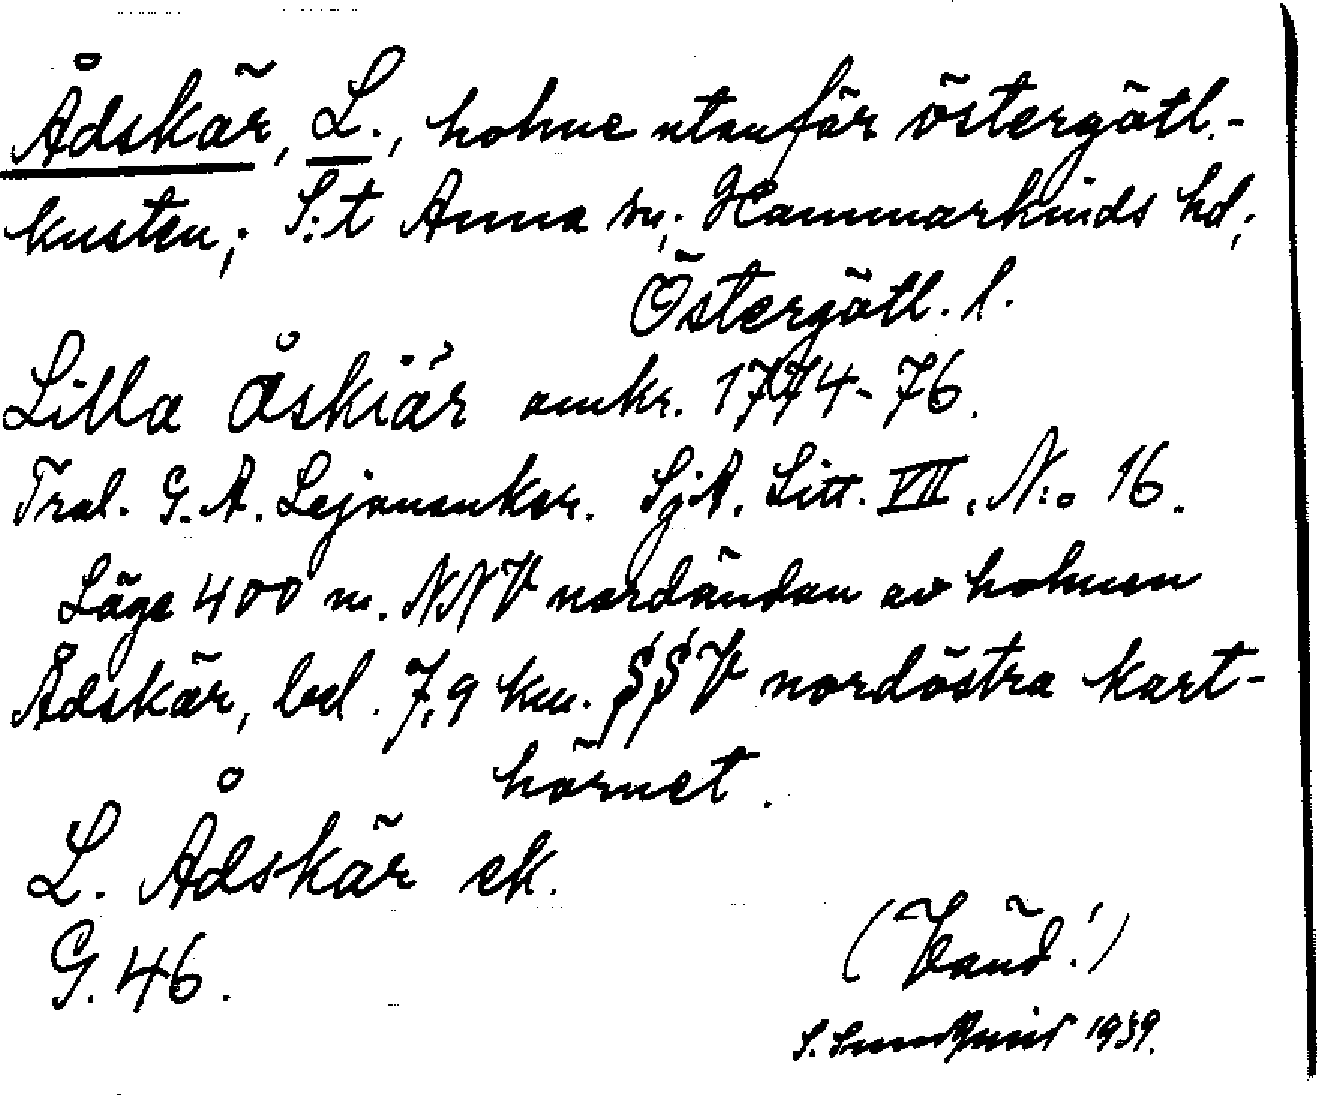 Ådskär, L., holme utanför östergötl.-
kusten; S:t Anna sn; Hammarkinds hd;
Östergötl. l.
Lilla åskiär omkr. 1774-76.
Tral. G. A. Lejonanker. SjA. Litt. VII. N:o 16.
Läge 400 m. NNV nordändan av holmen
Ådskär, bel. 7,9 km. SSV nordöstra kart-
hörnet.
L. Ådskär ek.
G. 46.
(Vänd!)
S. Sundquist 1939.